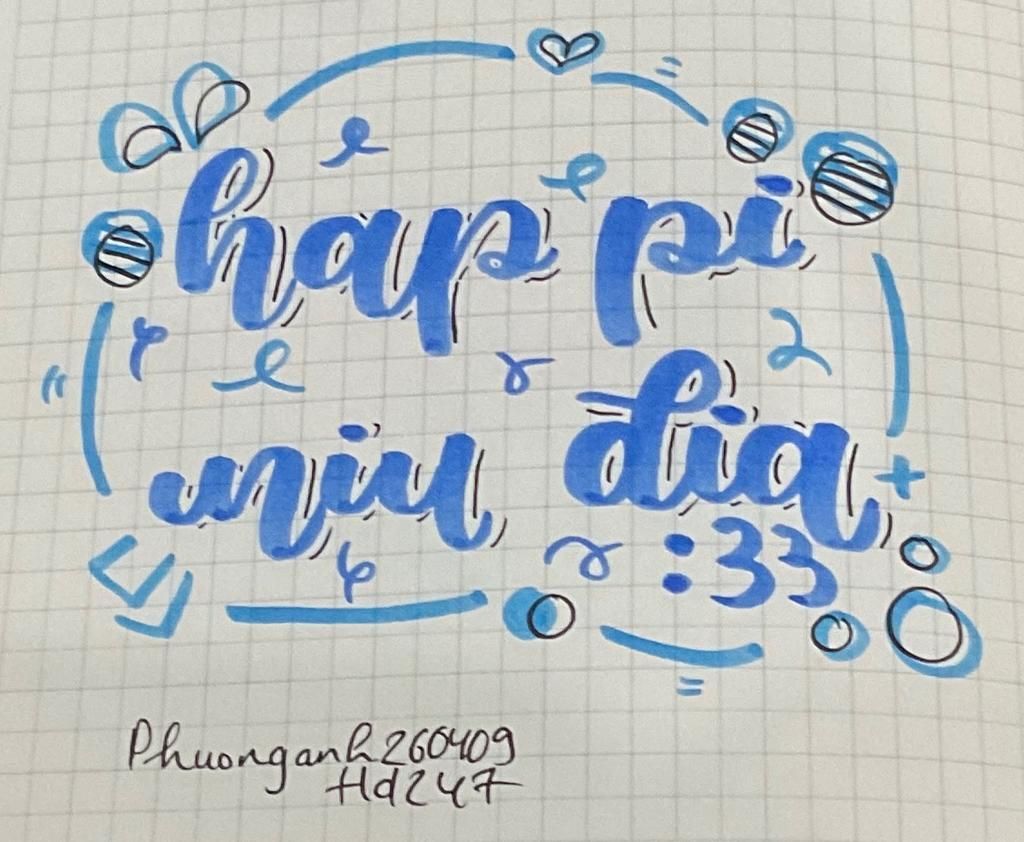 hap pi
niu dia
:33
Phuonganh260409
Hd247